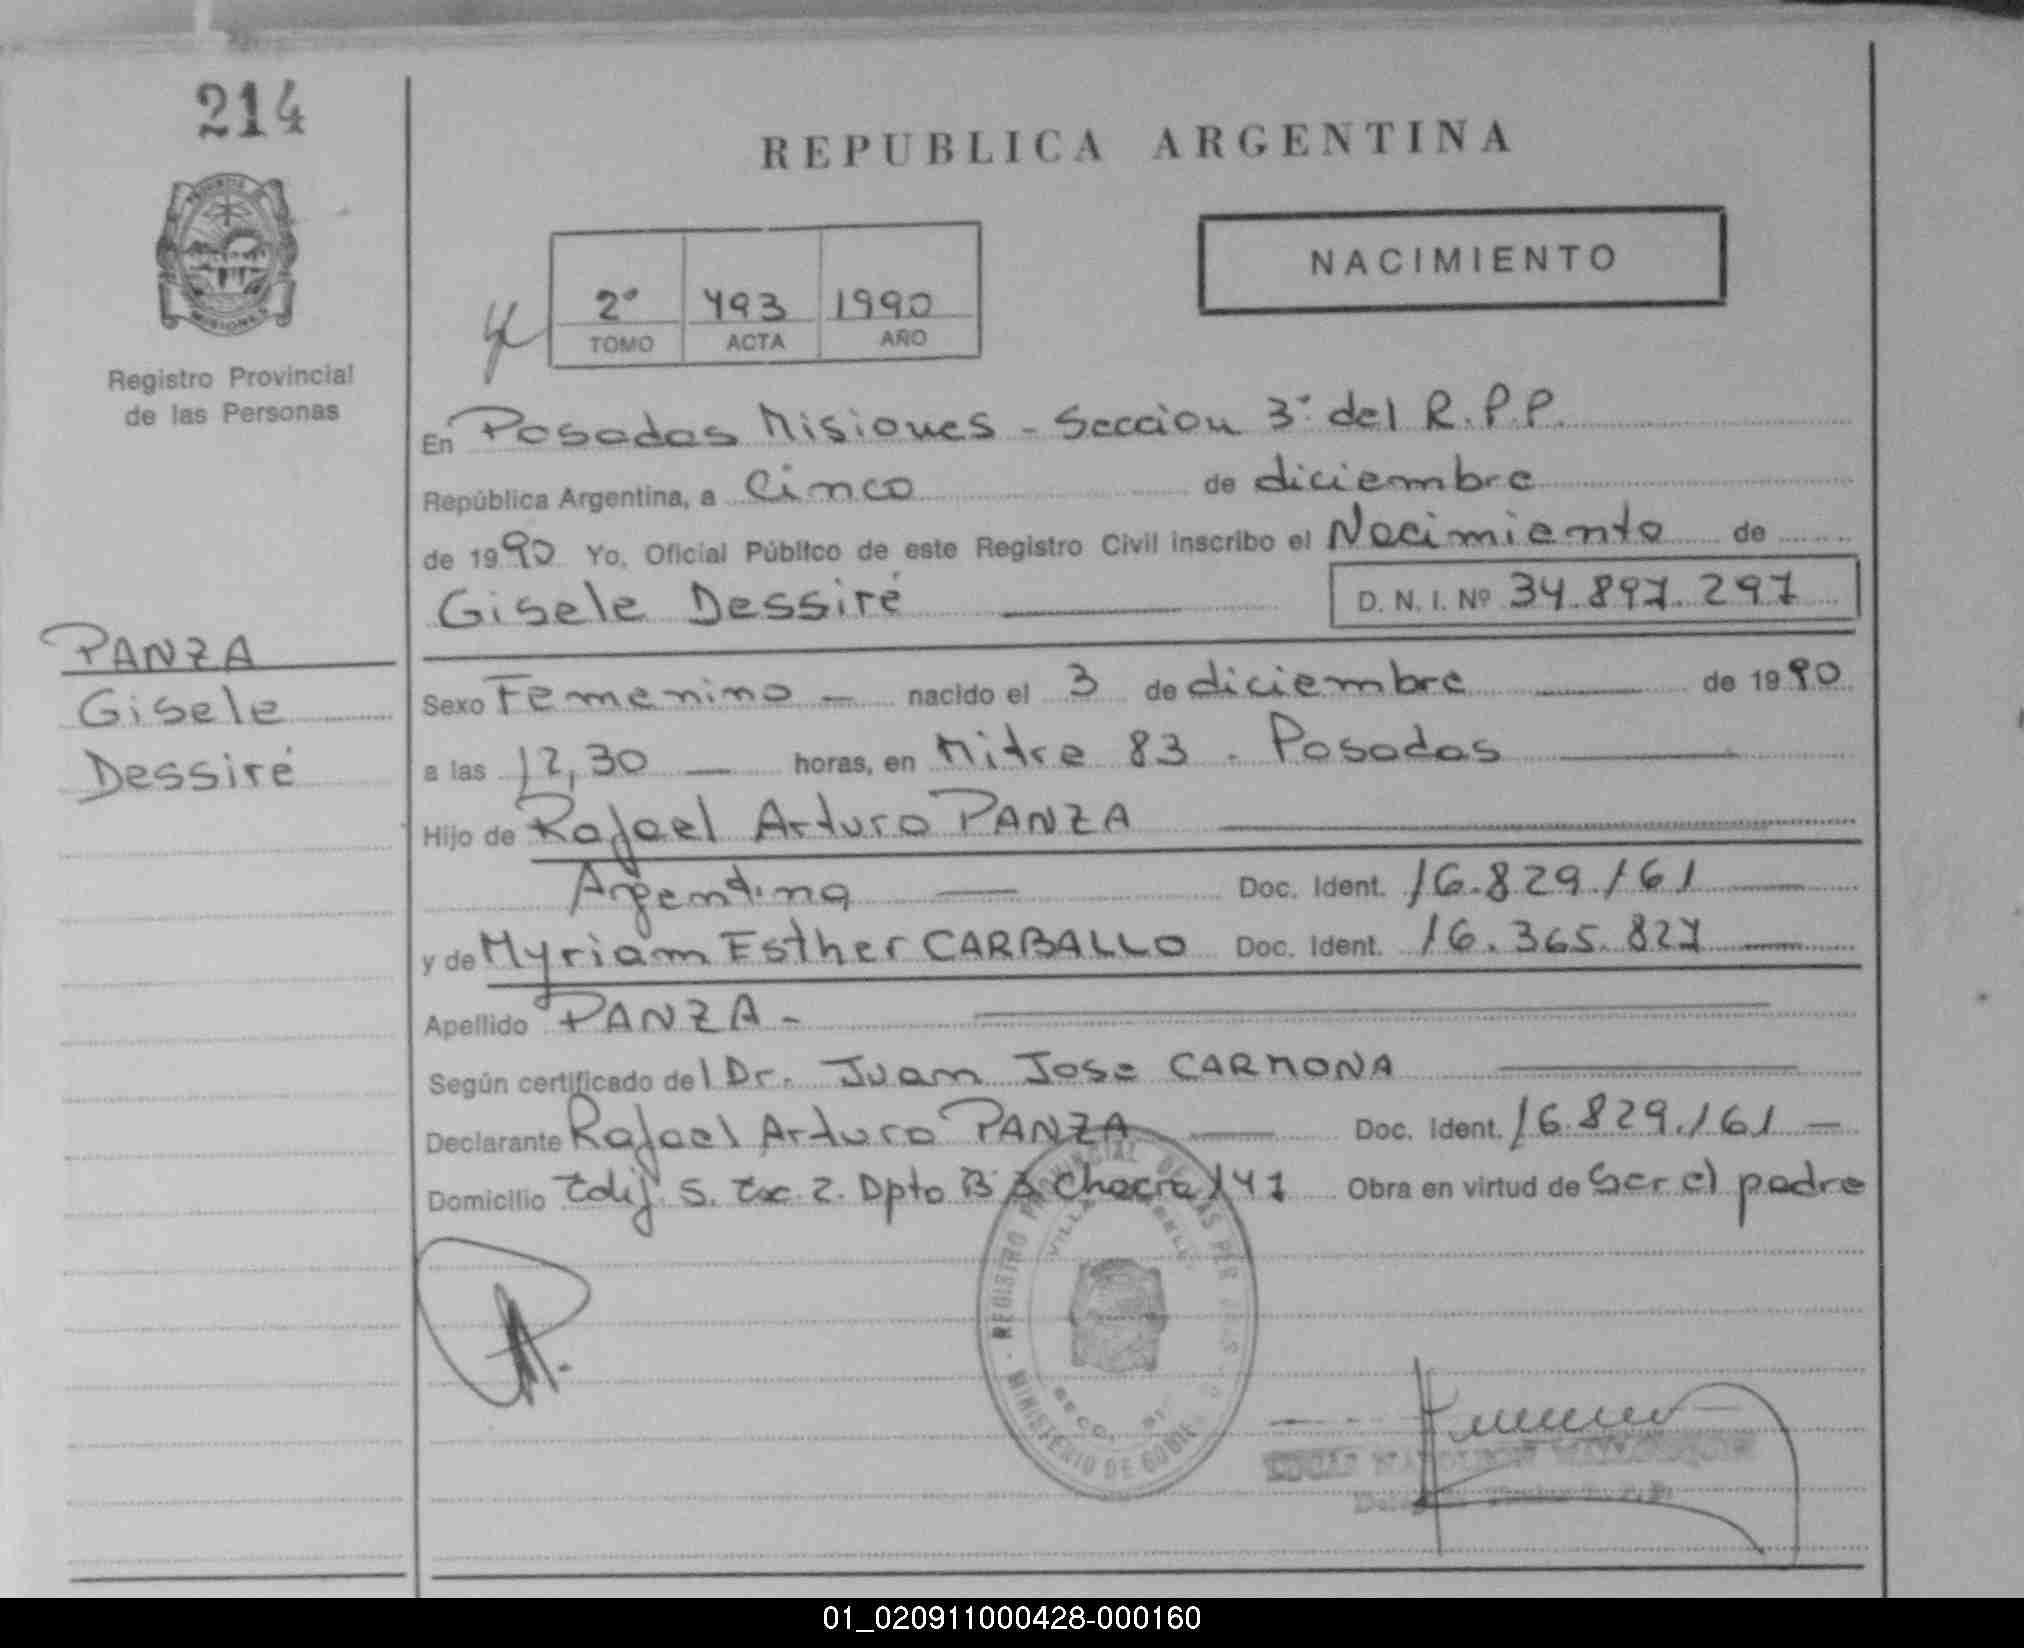 214
REPUBLICA ARGENTINA
NACIMIENTO
2° 493 1990
TOMO ACTA AÑO
MISIONES
Registro Provincial
de las Personas
En Posadas Misiones - Seccion 3° del R.P.P.
República Argentina, a Cinco de diciembre
de 1990 Yo, Oficial Público de este Registro Civil inscribo el Nacimiento de
Gisele Dessiré D. N. I. Nº 34.897.297
PANZA
Gisele
Dessiré
Sexo Femenino - nacido el 3 de diciembre de 1990
a las 12,30 horas, en Mitre 83 - Posadas
Hijo de Rafael Arturo PANZA
Argentina Doc. Ident. 16.829.161
y de Myriam Esther CARBALLO Doc. Ident. 16.365.827
Apellido PANZA -
Según certificado del Dr. Juan Jose CARMONA
Declarante Rafael Arturo PANZA Doc. Ident. 16.829.161 -
Domicilio Edif. 5. Esc. 2. Dpto B Chacra 141 Obra en virtud de ser el padre
REGISTRO PROVINCIAL DE LAS PER
VILLA
MINISTERIO DE
01_020911000428-000160